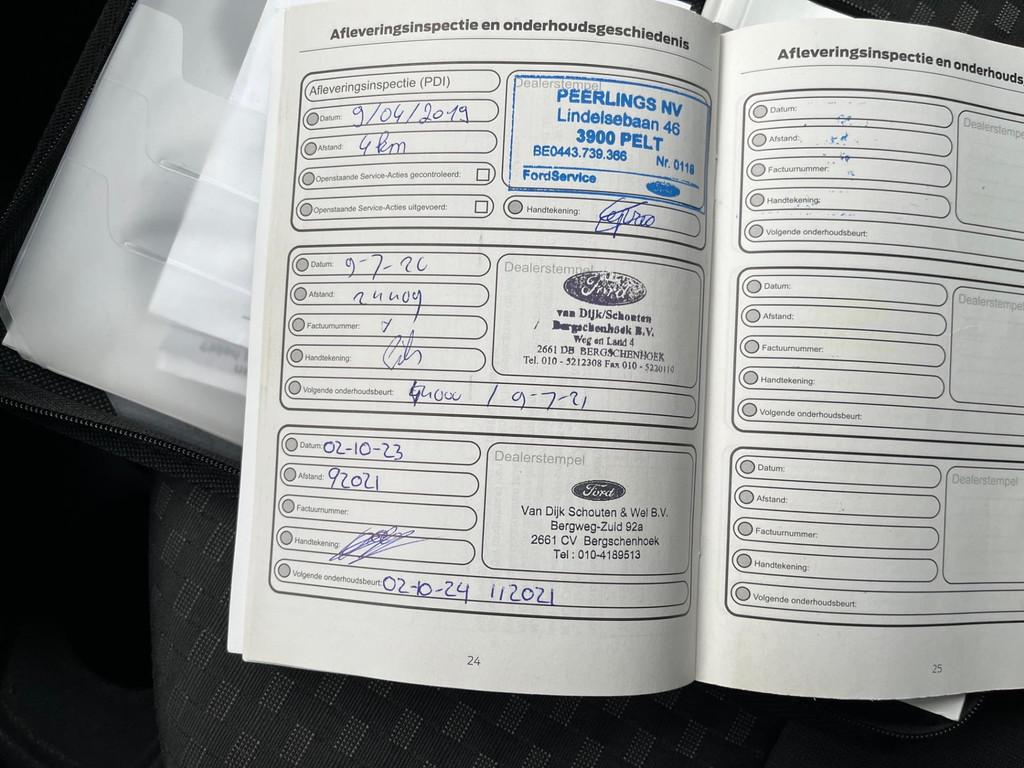 Afleveringsinspectie en onderhoudsgeschiedenis
Afleveringsinspectie (PDI)
Datum: 9/04/2019
Afstand: 4 km
Openstaande Service-Acties gecontroleerd:
Openstaande Service-Acties uitgevoerd:
Dealerstempel
PEERLINGS NV
Lindelsebaan 46
3900 PELT
BE0443.739.366 Nr. 0118
FordService
Handtekening:
Datum: 9-7-20
Afstand:
Factuurnummer:
Handtekening:
Volgende onderhoudsbeurt: / 9-7-21
Dealerstempel
Ford
van Dijk/Schouten
Bergschenhoek B.V.
Weg en Land 4
2661 DB BERGSCHENHOEK
Tel. 010 - 5212308 Fax 010 - 5220119
Datum: 02-10-23
Afstand: 92021
Factuurnummer:
Handtekening:
Volgende onderhoudsbeurt: 02-10-24 112021
Dealerstempel
Ford
Van Dijk Schouten & Wel B.V.
Bergweg-Zuid 92a
2661 CV Bergschenhoek
Tel : 010-4189513
24
Afleveringsinspectie en onderhouds
Datum:
Afstand:
Factuurnummer:
Handtekening:
Volgende onderhoudsbeurt:
Dealerstempe
Datum:
Afstand:
Factuurnummer:
Handtekening:
Volgende onderhoudsbeurt:
Dealerstempe
Datum:
Afstand:
Factuurnummer:
Handtekening:
Volgende onderhoudsbeurt:
Dealerstempel
25